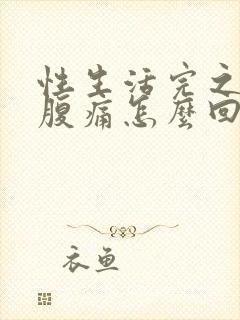 性生活完之
腹痛怎麼回
衣鱼